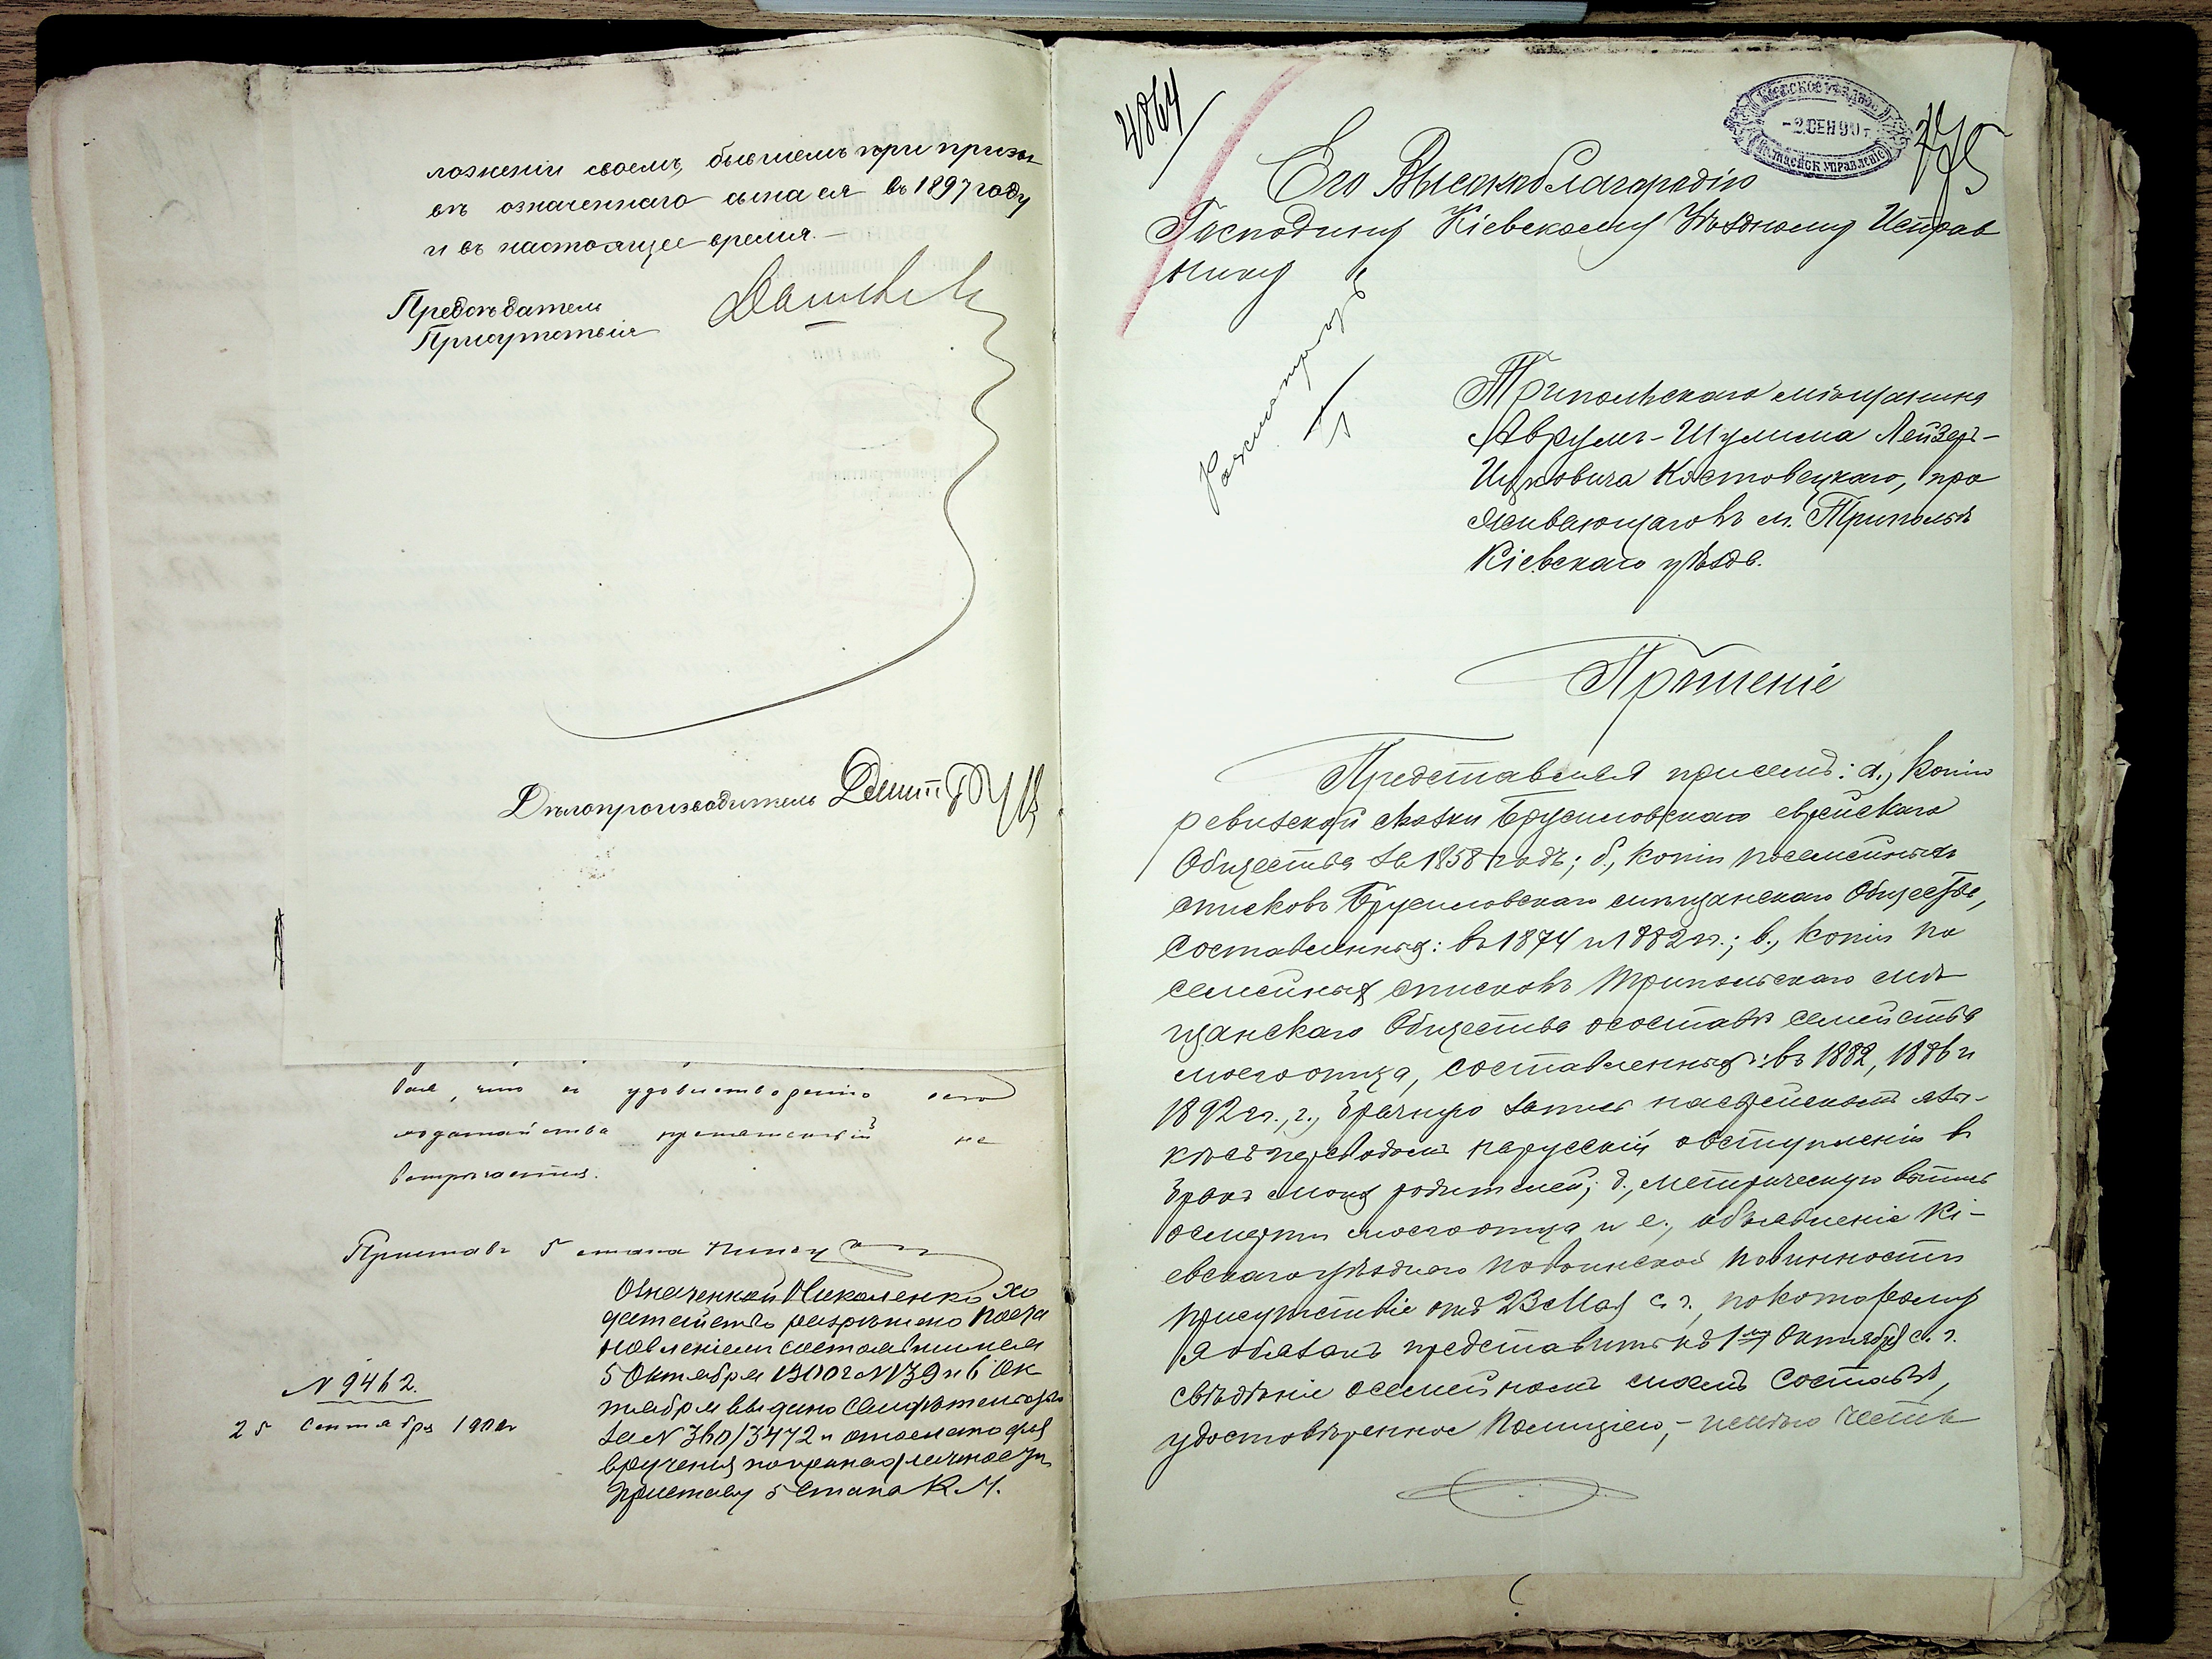 ложеніи своемъ, бывшемъ при призы
вѣ означеннаго сына ея въ 1897 году
и въ настоящее время.—
Предсѣдатель
Присутствія
Дѣлопроизводитель
что къ удовлетворенію сего
ходатайства препятствій не
встрѣчается.
Приставъ 5 стана
Означенной Николенко хо
датайство разрѣшено поста
новленіемъ состоявшимся
5 Октября 1900 г № 139 и 6 Ок
тября выдано свидѣтельство
за № 360/3472 и отослано для
вручения по принадлежности
Приставу 5 стана К. У.
№ 9462.
25 Сентября 1900 г
4864
КІЕВСКОЕ УѢЗДНОЕ
- 2 СЕН 90 г.
ПОЛИЦЕЙСК УПРАВЛЕНІЕ
Его Высокоблагородію
Господину Кіевскому Уѣздному Исправ
нику
Трипольскаго мѣщанина
Аврумъ-Шулима Лейзеръ-
Ицковича Костовецкаго, про
живающаго въ м. Трипольѣ
Кіевскаго уѣзда.
Прошеніе
Представляя при семъ: а., копію
ревизской сказки Брусиловскаго еврейскаго
Общества за 1858 годъ; б., копіи посемейныхъ
списковъ Брусиловскаго мѣщанскаго Общества,
составленныя: въ 1874 и 1882 гг.; в., копіи по
семейныхъ списковъ Трипольскаго мѣ
щанскаго Общества о составѣ семейства
моего отца, составленныя: въ 1882, 1886 и
1892 гг., г., брачную запись на еврейскомъ язы-
кѣ съ переводомъ на русскій о вступленіи въ
бракъ моихъ родителей; д., метрическую выпись
о смерти моего отца и е., объявленіе Кі-
евскаго уѣзднаго по воинской повинности
присутствіе отъ 23 Мая с. г., по которому
я обязанъ представить къ 1му Октября с. г.
свѣдѣніе о семейномъ моемъ составѣ,
удостовѣренное Полиціею,— имѣю честь